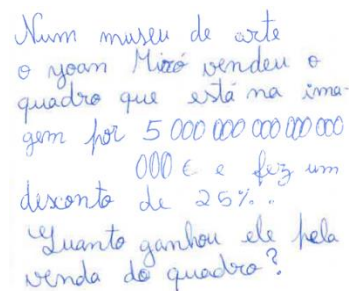 Num museu de arte
o yoan Miró vendeu o
quadro que está na ima-
gem por 5 000 000 000 000 000
000 € e fez um
desconto de 25%..
Quanto ganhou ele pela
venda do quadro?